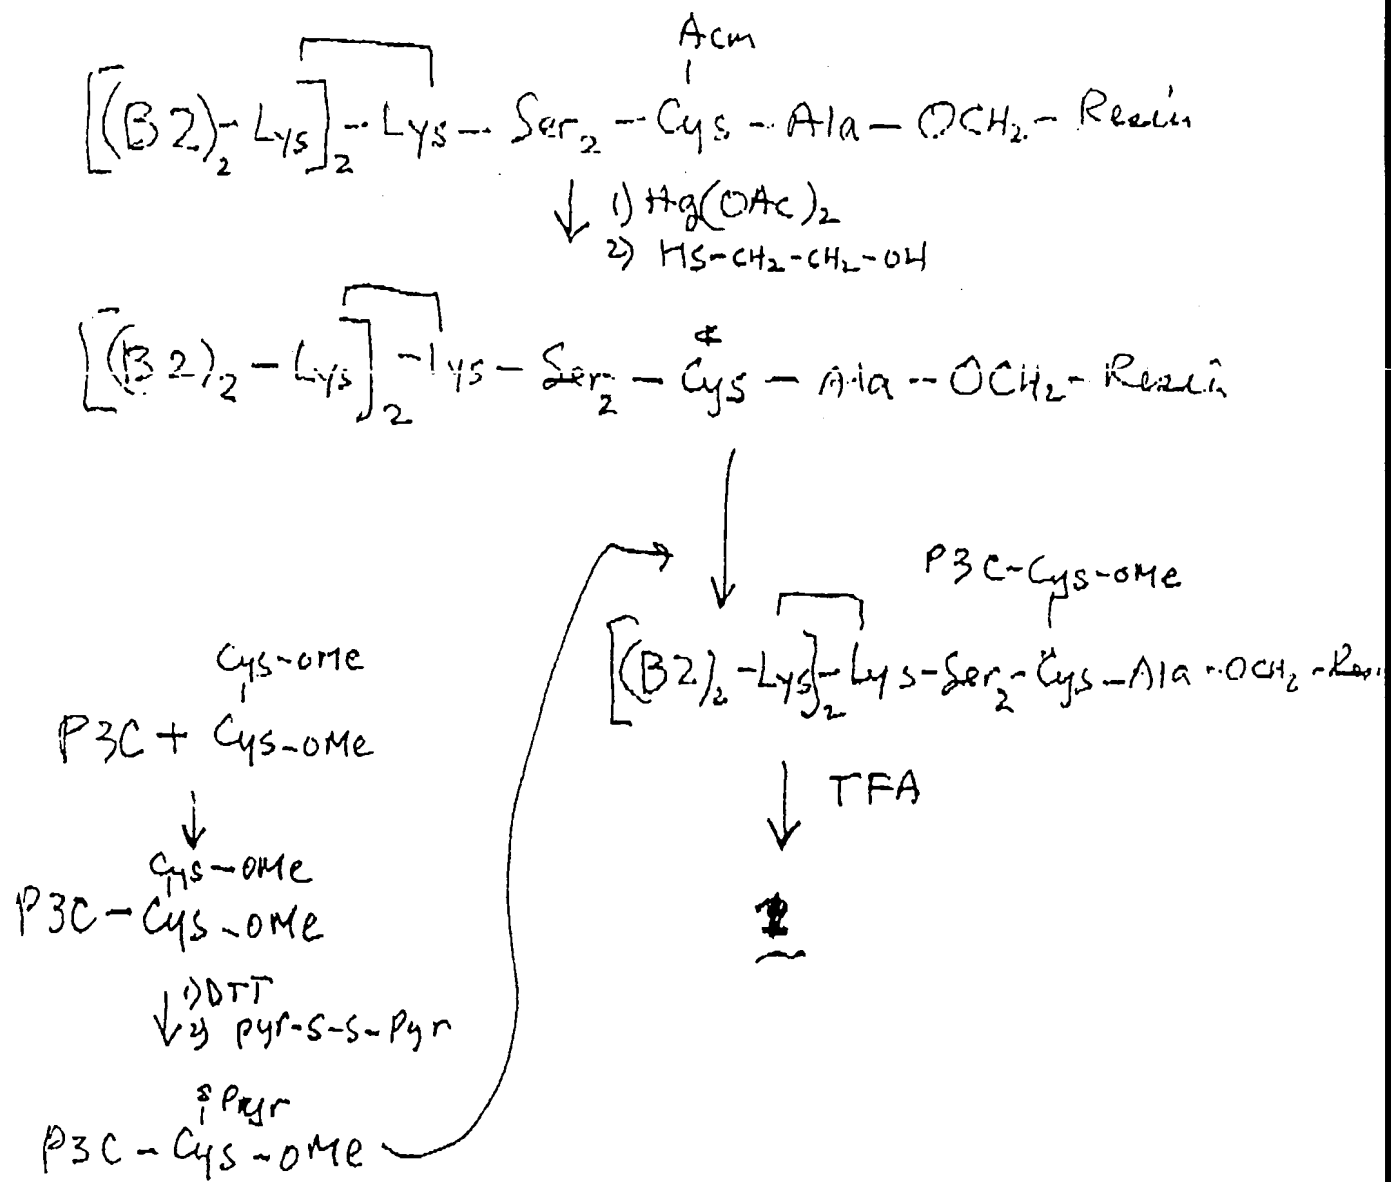 Acm
[(B2)2-Lys]2-Lys-Ser2-Cys-Ala-OCH2-Resin
1) Hg(OAc)2
2) HS-CH2-CH2-OH
[(B2)2-Lys]2-Lys-Ser2-Cys-Ala-OCH2-Resin
P3C-Cys-OMe
[(B2)2-Lys]2-Lys-Ser2-Cys-Ala-OCH2-Resin
TFA
1
Cys-OMe
P3C + Cys-OMe
Cys-OMe
P3C-Cys-OMe
1) DTT
2) Pyr-S-S-Pyr
S Pyr
P3C-Cys-OMe